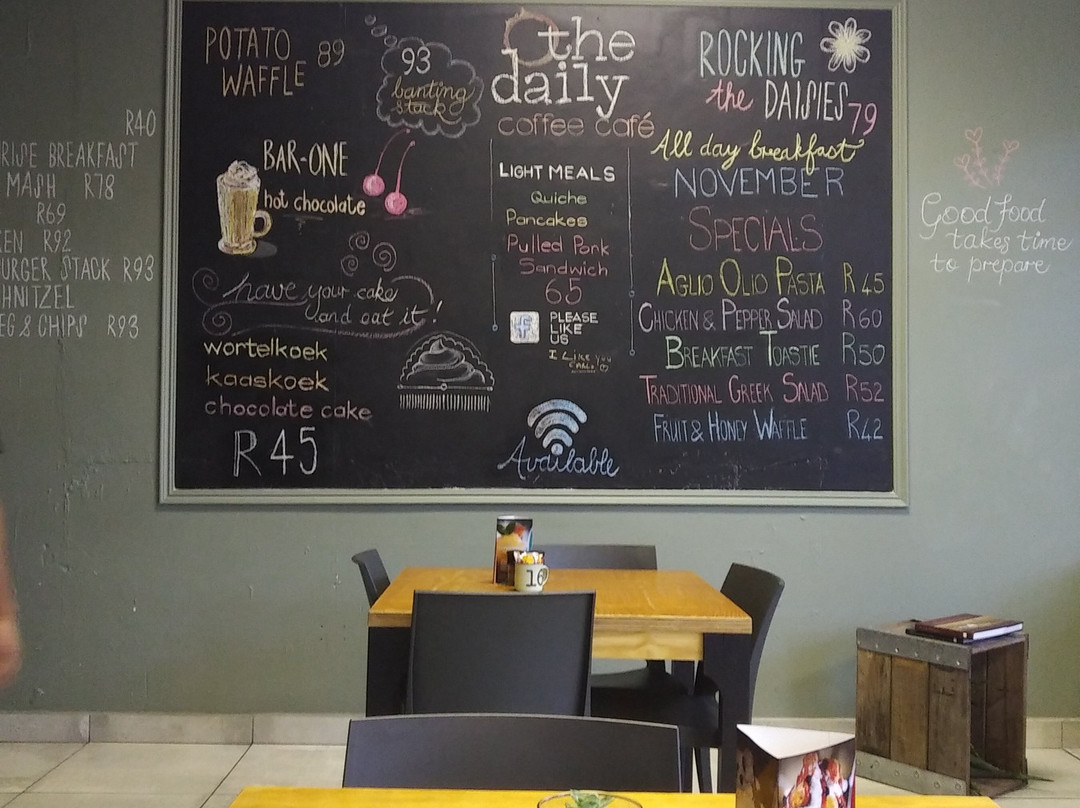 R40
BREAKFAST
MASH R78
R69
R92
BURGER STACK R93
& CHIPS R93
POTATO 89
WAFFLE
93
banting
stack
BAR-ONE
hot chocolate
have your cake
and eat it!
wortelkoek
kaaskoek
chocolate cake
R45
the
daily
coffee café
LIGHT MEALS
Quiche
Pancakes
Pulled Pork
Sandwich
65
f
PLEASE
LIKE
US
Available
ROCKING
the DAISIES 79
All day breakfast
NOVEMBER
SPECIALS
AGLIO OLIO PASTA R45
CHICKEN & PEPPER SALAD R60
BREAKFAST TOASTIE R50
TRADITIONAL GREEK SALAD R52
FRUIT & HONEY WAFFLE R42
Good food
takes time
to prepare
16